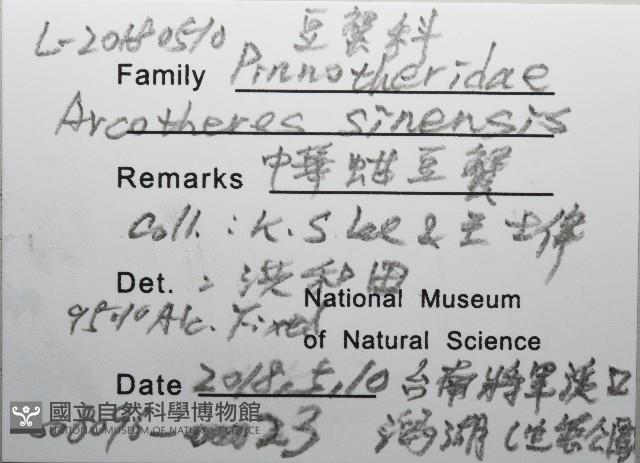 L-20180510 豆蟹科
Family Pinnotheridae
Arcotheres sinensis
Remarks 中華蚶豆蟹
Coll. : K. S Lee & 王士偉
Det. : 洪和田
National Museum
95% Alc. Fixed
of Natural Science
Date 2018.5.10 台南將軍溪口
國立自然科學博物館
NATIONAL MUSEUM OF NATURAL SCIENCE
潟湖